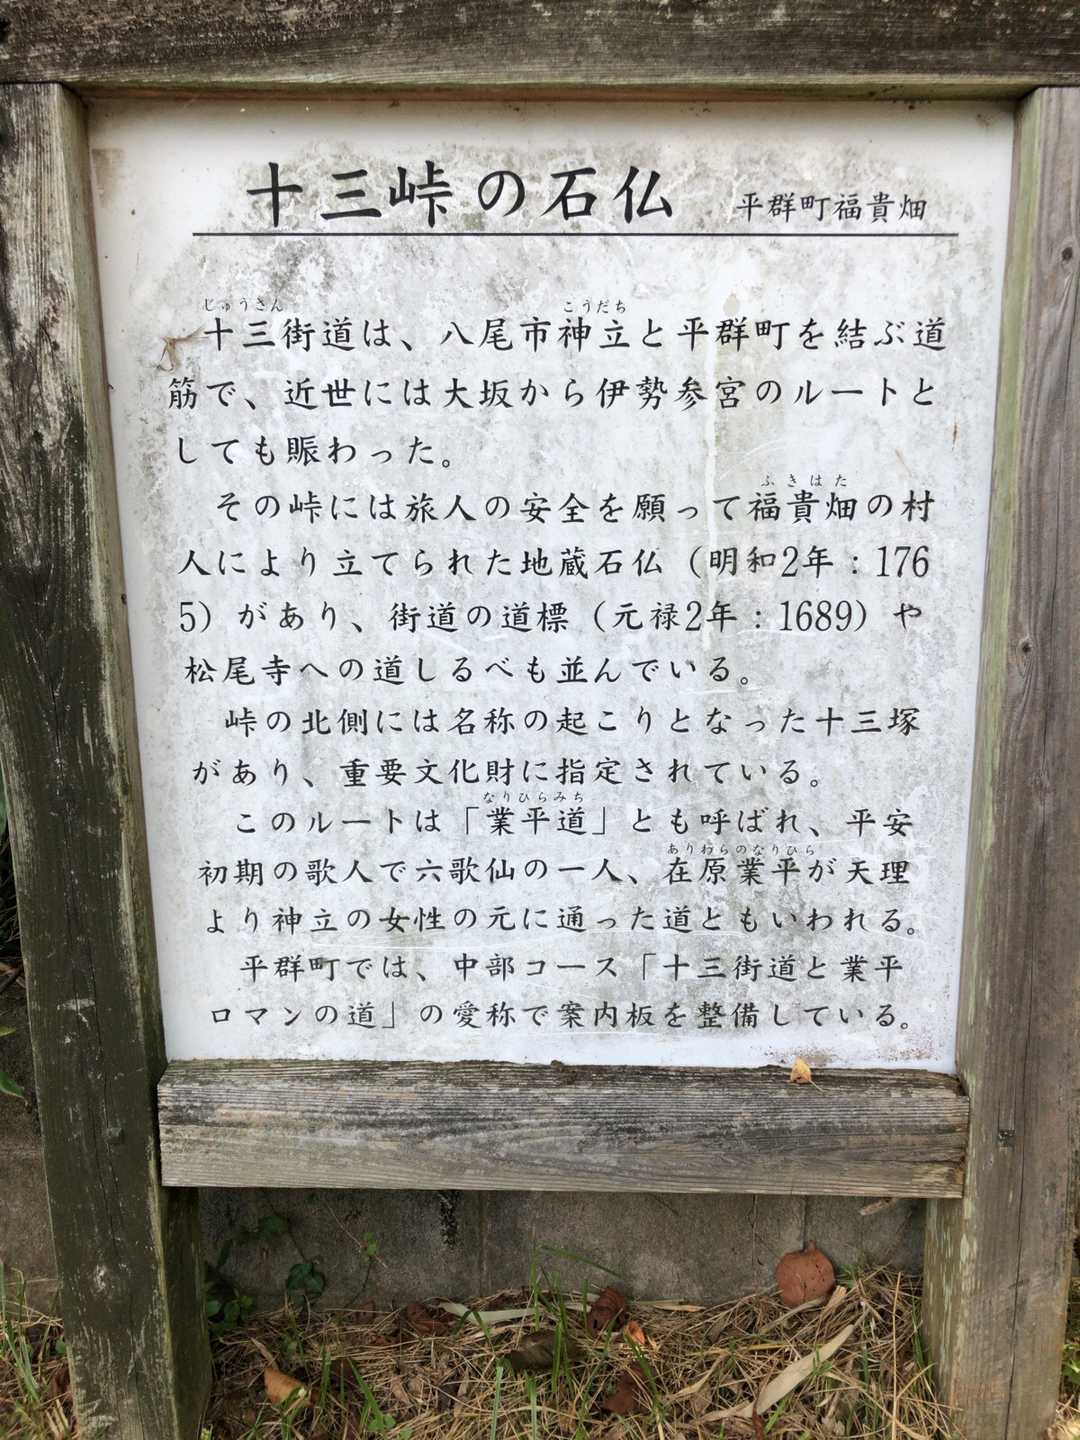 十三峠の石仏　平群町福貴畑
じゅうさん　こうだち
十三街道は、八尾市神立と平群町を結ぶ道
筋で、近世には大坂から伊勢参宮のルートと
しても賑わった。
ふきはた
その峠には旅人の安全を願って福貴畑の村
人により立てられた地蔵石仏（明和2年：176
5）があり、街道の道標（元禄2年：1689）や
松尾寺への道しるべも並んでいる。
峠の北側には名称の起こりとなった十三塚
があり、重要文化財に指定されている。
なりひらみち
このルートは「業平道」とも呼ばれ、平安
ありわらのなりひら
初期の歌人で六歌仙の一人、在原業平が天理
より神立の女性の元に通った道ともいわれる。
平群町では、中部コース「十三街道と業平
ロマンの道」の愛称で案内板を整備している。